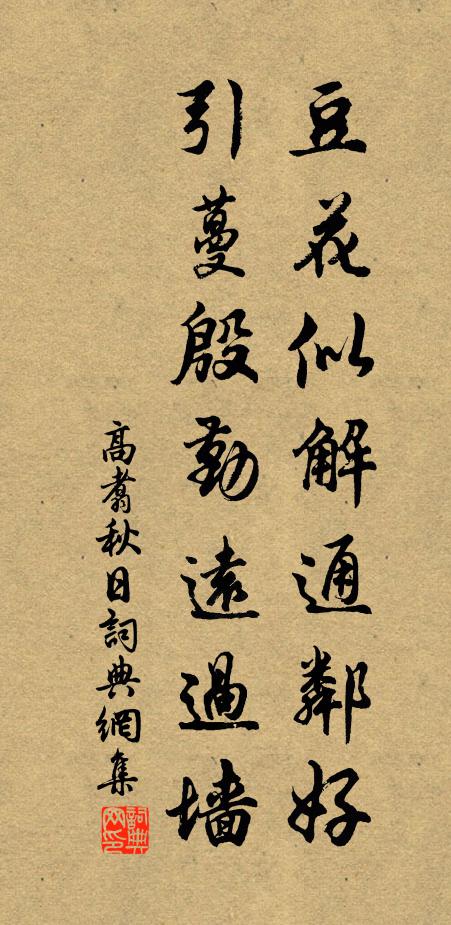 豆花似解通鄰好
引蔓殷勤遠過墙
高翥秋日詞典網集
詞典网印